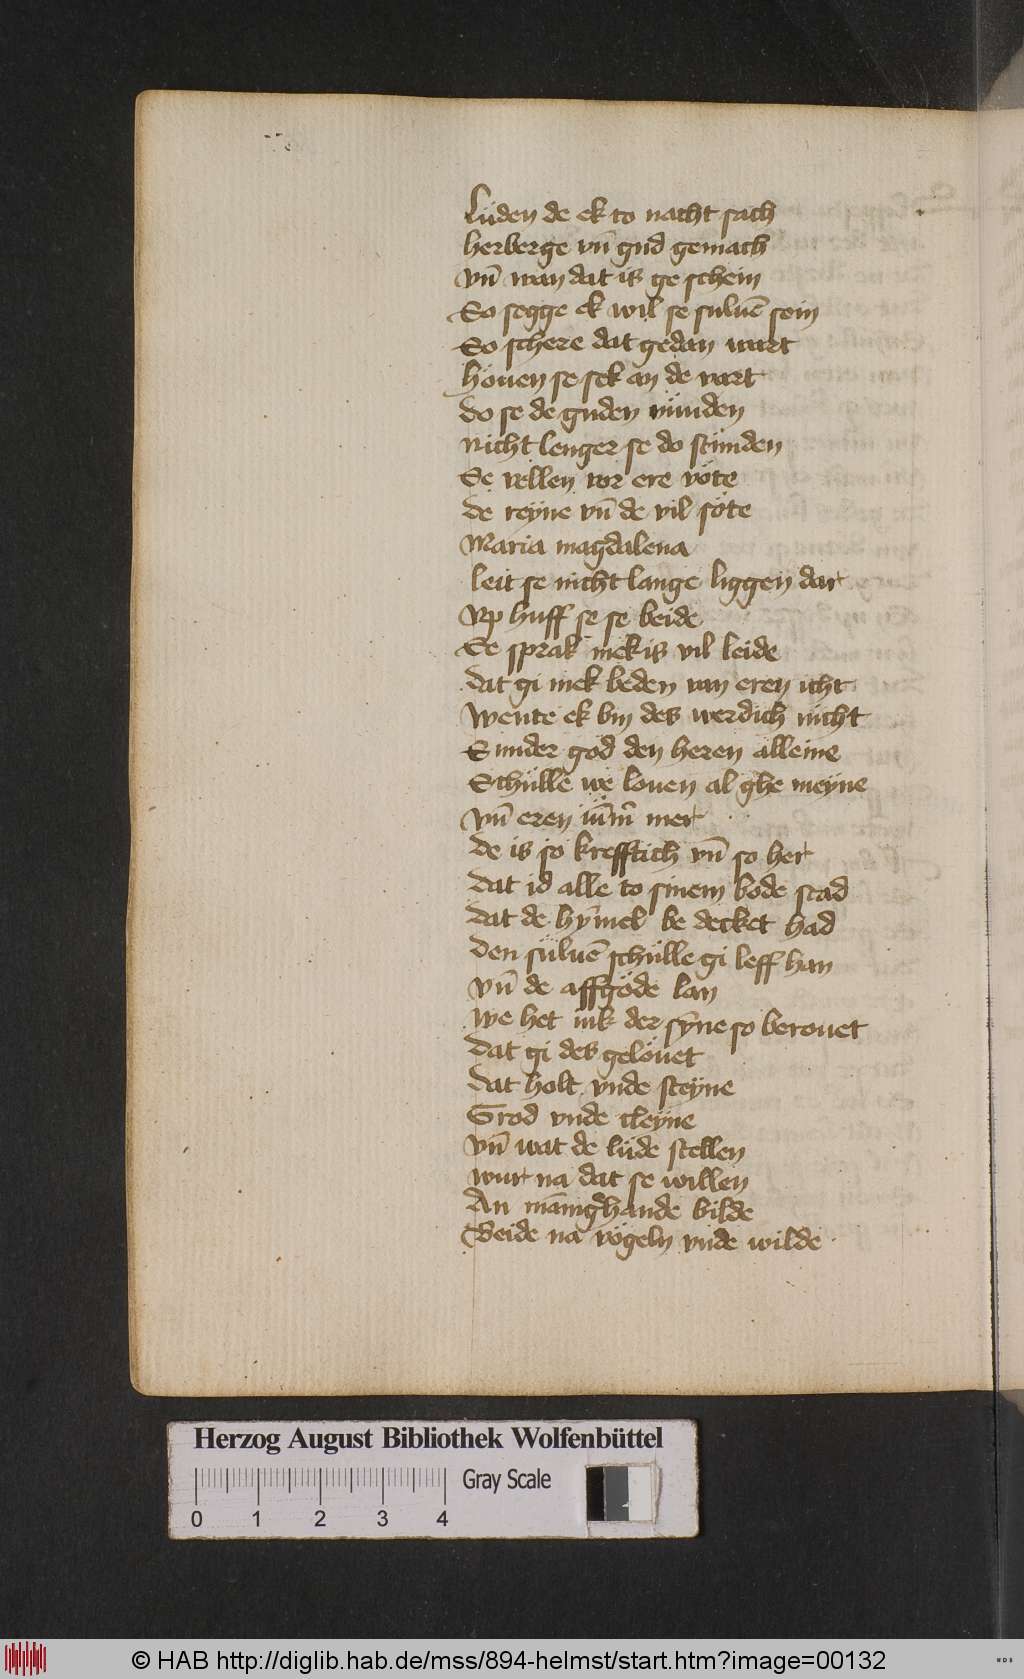 Lüden de ek to nacht sach
herberge vn̄ gud gemach
vn̄ wan dat is ge schein
So segge ek wil se suluē sein
So schere dat gedan wart
höuen se sek an de vart
do se de guden vünden
nicht lenger se do stunden
Se vellen vor ere vöte
de reyne vn̄ de vil söte
Maria magdalena
leit se nicht lange liggen dar
Vp huff se se beide
Se sprak mek is vil leide
dat gi mek beden van eren icht
Wente ek bin des werdich nicht
Sunder god den heren alleine
Schülle we louen al ghe meyne
vn̄ eren iūm̄ mer
de is so krefftich vn̄ so her
dat id alle to sinem bode stad
dat de hȳmel be decket had
den süluē schülle gi leff han
vn̄ de affgöde lan
we het iuk der sȳne so berouet
dat gi des gelöuet
dat holt vnde steyne
Grod vnde cleyne
vn̄ wat de lüde stellen
wur na dat se willen
An mānighande bilde
Beide na vögeln vnde wilde
Herzog August Bibliothek Wolfenbüttel
Gray Scale
0 1 2 3 4
© HAB http://diglib.hab.de/mss/894-helmst/start.htm?image=00132